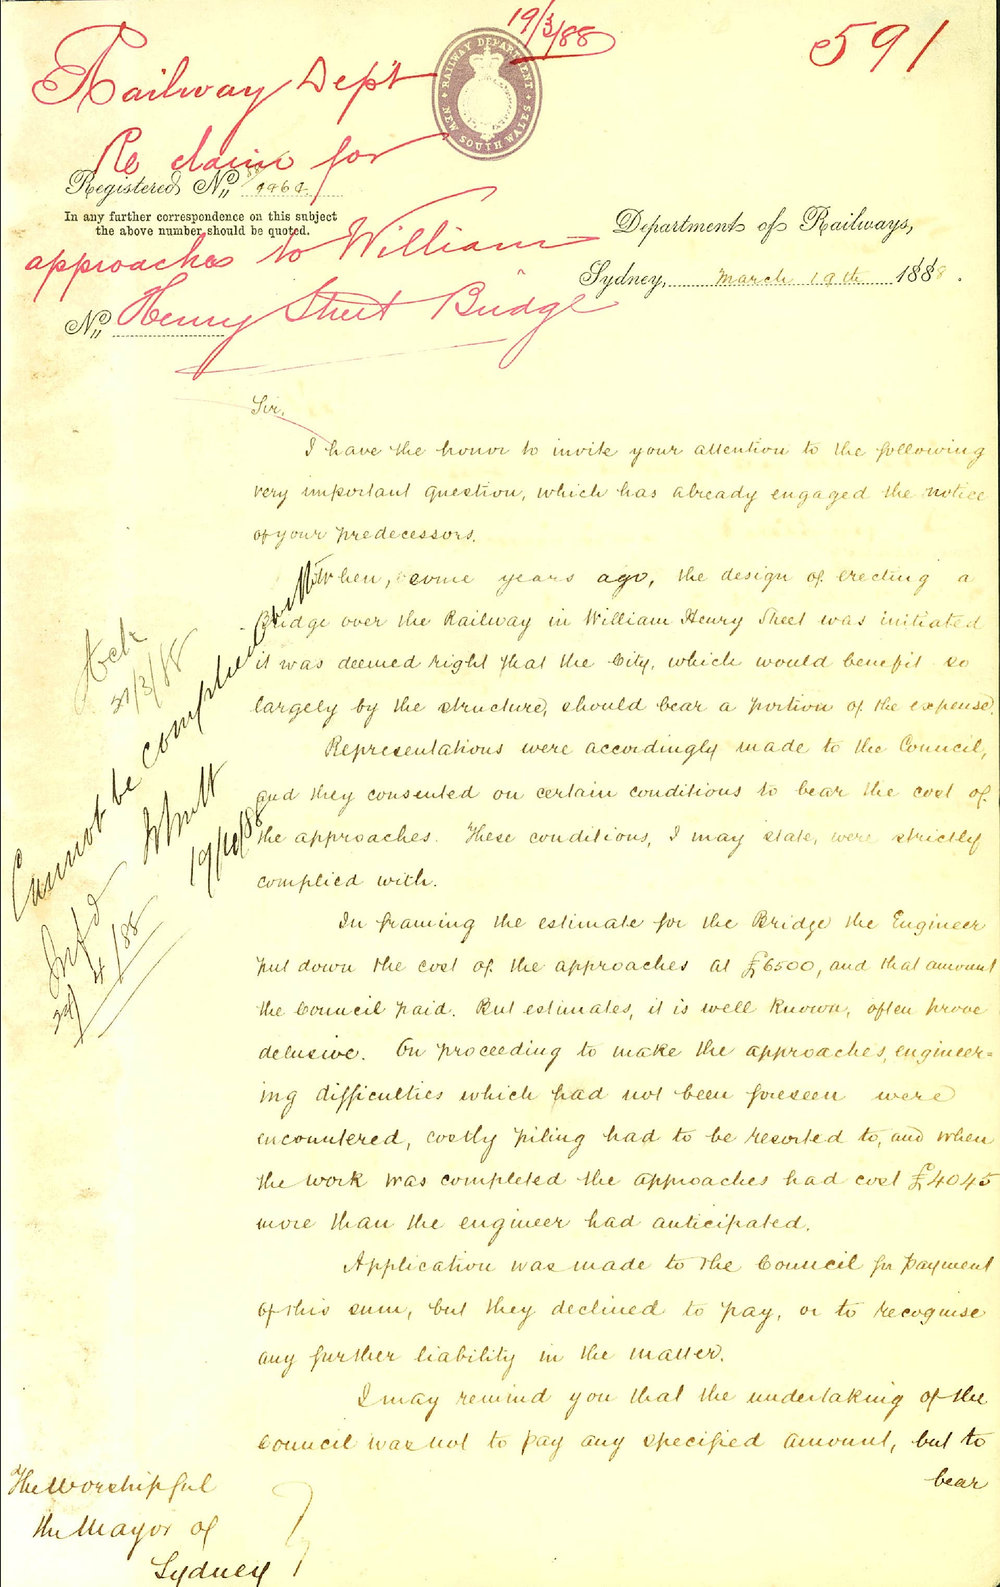 19/3/88
591
RAILWAY DEPARTMENT
NEW SOUTH WALES
Railway Dept
Re claim for
approaches to William
Henry Street Bridge
Registered No.
In any further correspondence on this subject
the above number should be quoted.
No.
Department of Railways,
Sydney, March 19th 1888.
Sir,
I have the honor to invite your attention to the following
very important question, which has already engaged the notice
of your predecessors.
When, some years ago, the design of erecting a
Bridge over the Railway in William Henry Street was initiated
it was deemed right that the City, which would benefit so
largely by the structure, should bear a portion of the expense.
Representations were accordingly made to the Council,
and they consented on certain conditions to bear the cost of
the approaches. These conditions, I may state, were strictly
complied with.
In framing the estimate for the Bridge the Engineer
put down the cost of the approaches at £6500, and that amount
the Council paid. But estimates, it is well known, often prove
delusive. On proceeding to make the approaches, engineer=
ing difficulties which had not been foreseen were
encountered, costly piling had to be resorted to, and when
the work was completed the approaches had cost £4045
more than the engineer had anticipated.
Application was made to the Council for payment
of this sum, but they declined to pay, or to recognise
any further liability in the matter.
I may remind you that the undertaking of the
Council was not to pay any specified amount, but to
bear
The Worshipful
the Mayor of
Sydney
Ack
21/3/88
Cannot be complied with
Infd